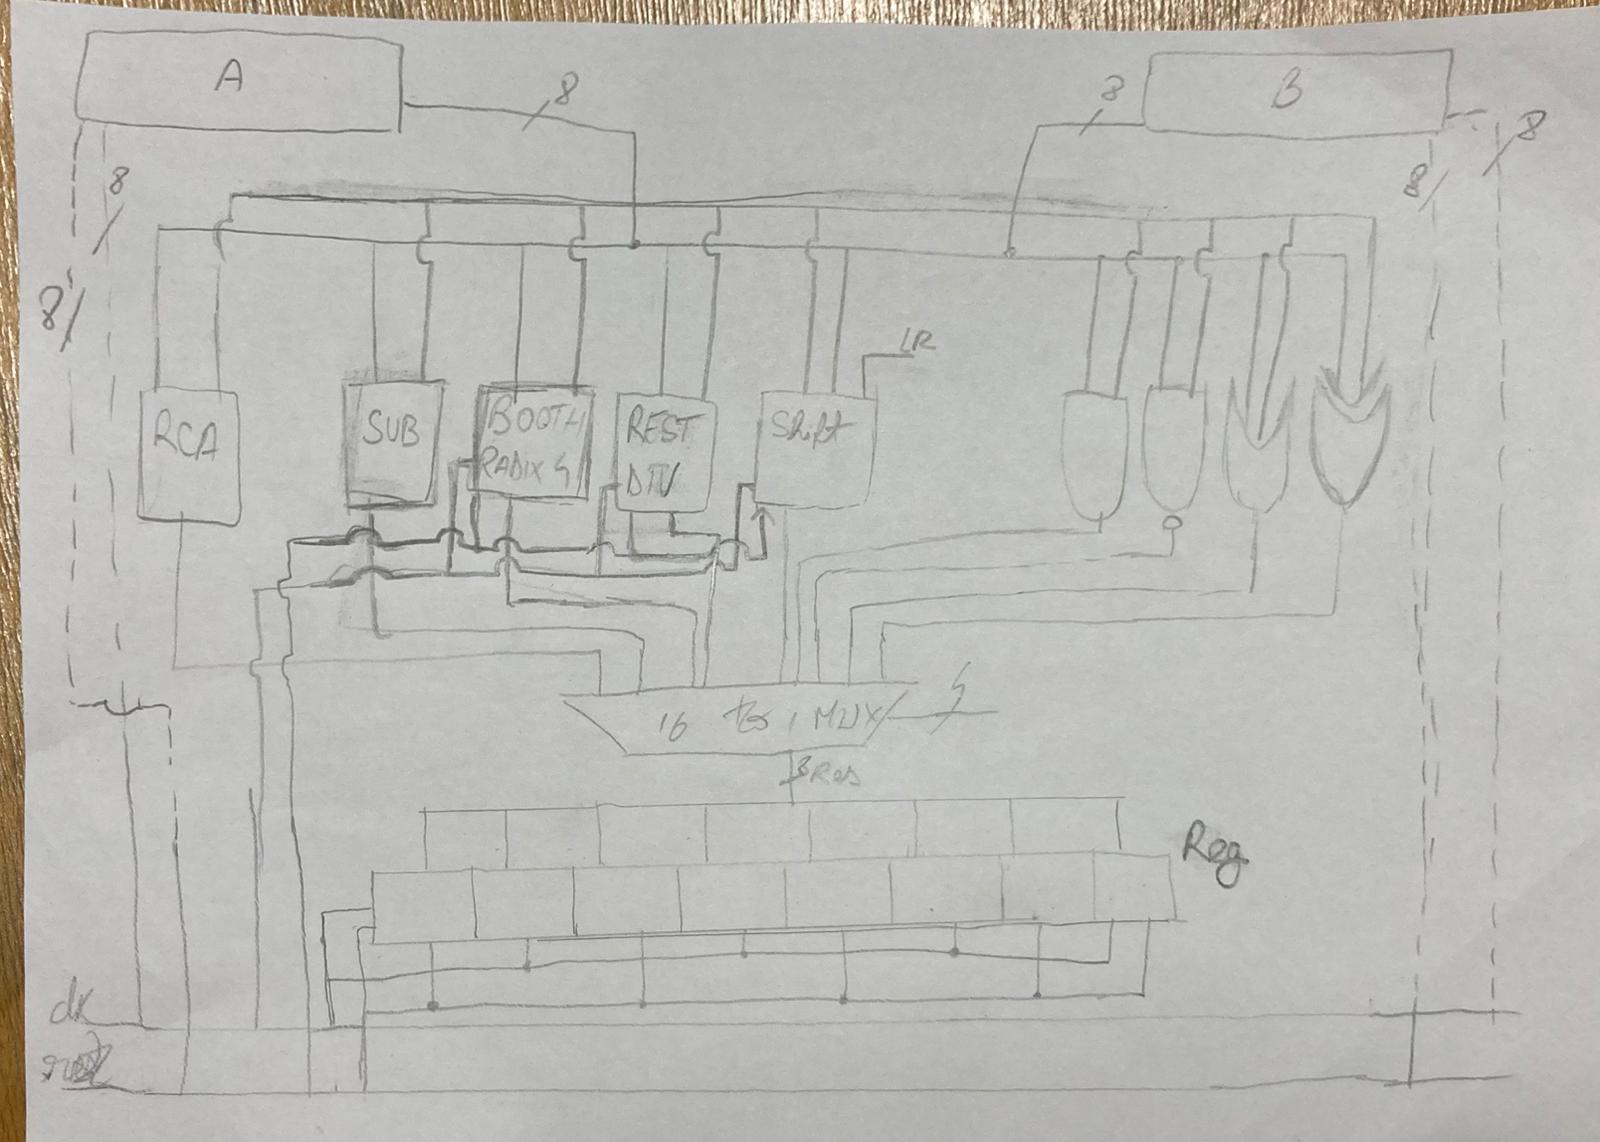 A
B
8
8
8
8
8
8
LR
RCA
SUB
BOOTH
RADIX 4
REST
DIV
Shift
16 to 1 MUX
4
Res
Reg
clk